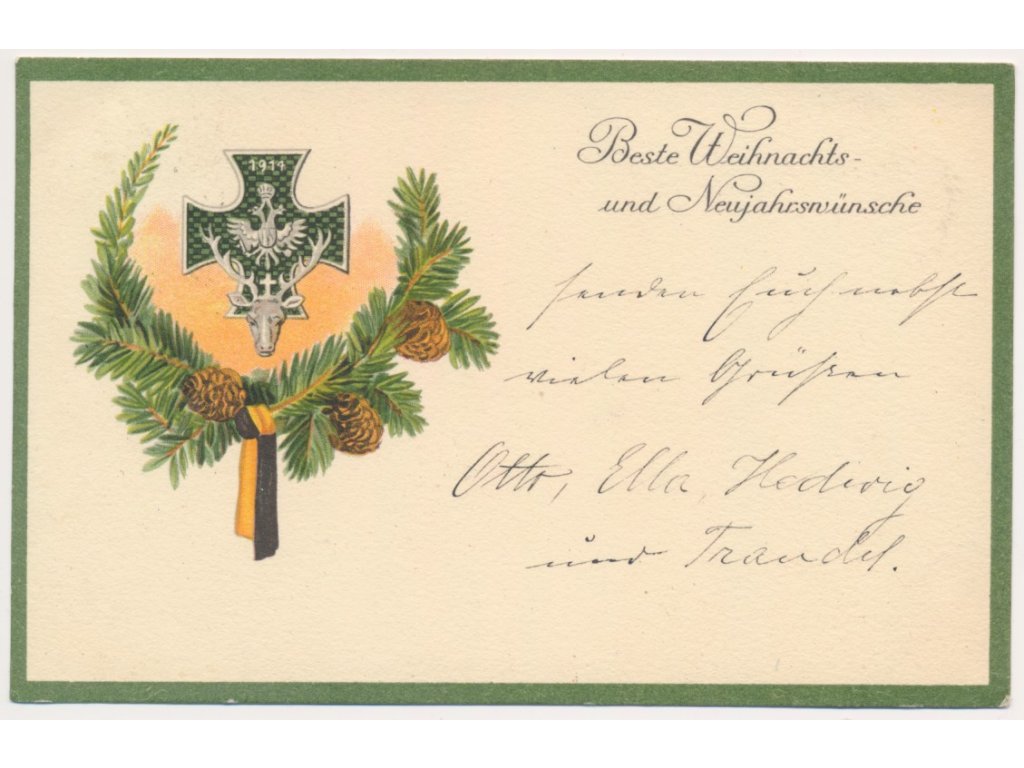 1914
Beste Weihnachts-
und Neujahrswünsche
senden Euch nebst
vielen Grüßen
Otto, Ella, Hedwig
und Traudel.